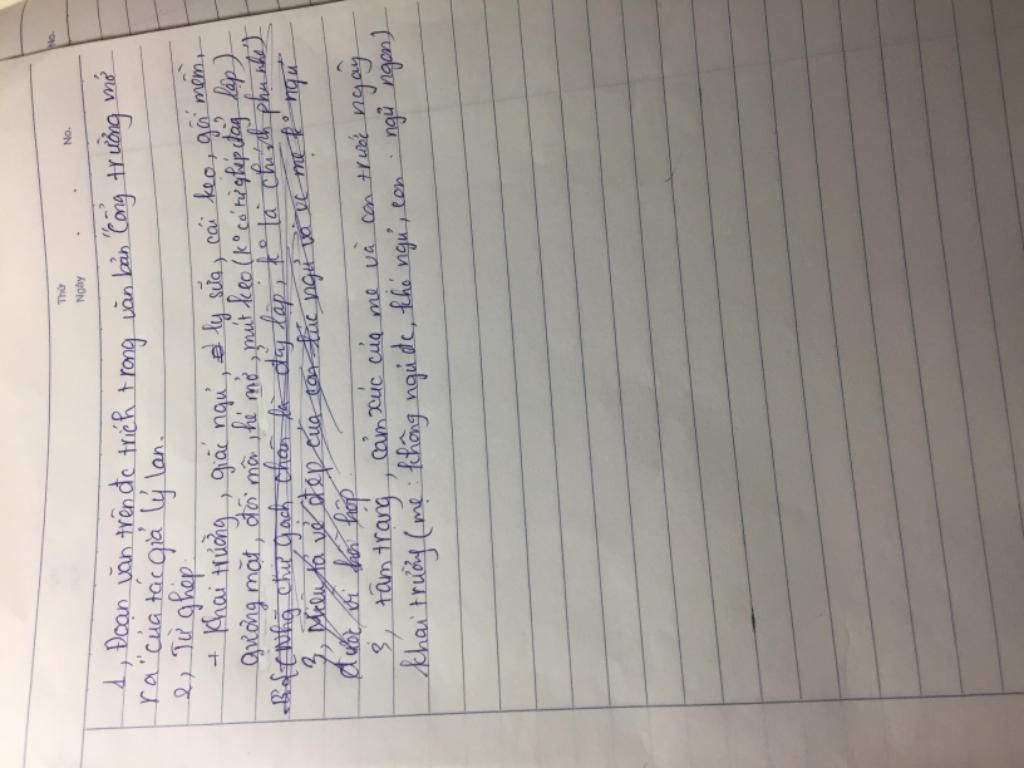 No.
Thứ
Ngày
No.
1, Đoạn văn trên đc trích trong văn bản "Cổng trường mở
ra" của tác giả Lý Lan.
2, Từ ghép:
+ Khai trường, giấc ngủ, ly sữa, cái kẹo, gối mềm,
gương mặt, đôi môi, hé mở, mút kẹo (ko có nghiệp đẳng lập)
(Nhg chữ gạch chân là đẳng lập, ko là chính phụ nhé)
3, Miêu tả vẻ đẹp của con lúc ngủ và vẻ mẹ ko ngủ
được vì hồi hộp
3, tâm trạng, cảm xúc của mẹ và con trước ngày
khai trường (mẹ: không ngủ đc, khó ngủ, con: ngủ ngon)